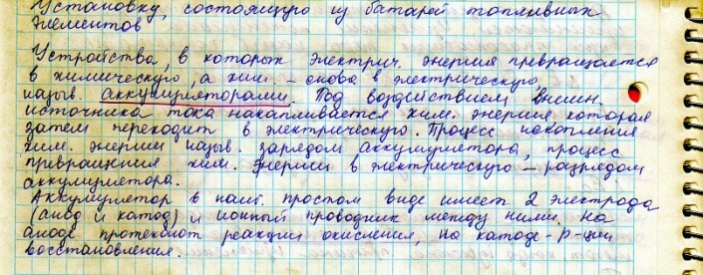 Установку, состоящую из батарей топливных
элементов
Устройства, в которых электрич. энергия превращается
в химическую, а хим. – снова в электрическую
назыв. аккумуляторами. Под воздействием внешн.
источника тока накапливается хим. энергия, которая
затем переходит в электрическую. Процесс накопления
хим. энергии назыв. зарядом аккумулятора, процесс
превращения хим. энергии в электрическую – разрядом
аккумулятора.
Аккумулятор в наиб. простом виде имеет 2 электрода
(анод и катод) и ионный проводник между ними. На
аноде протекают реакции окисления, на катоде – р-ции
восстановления.